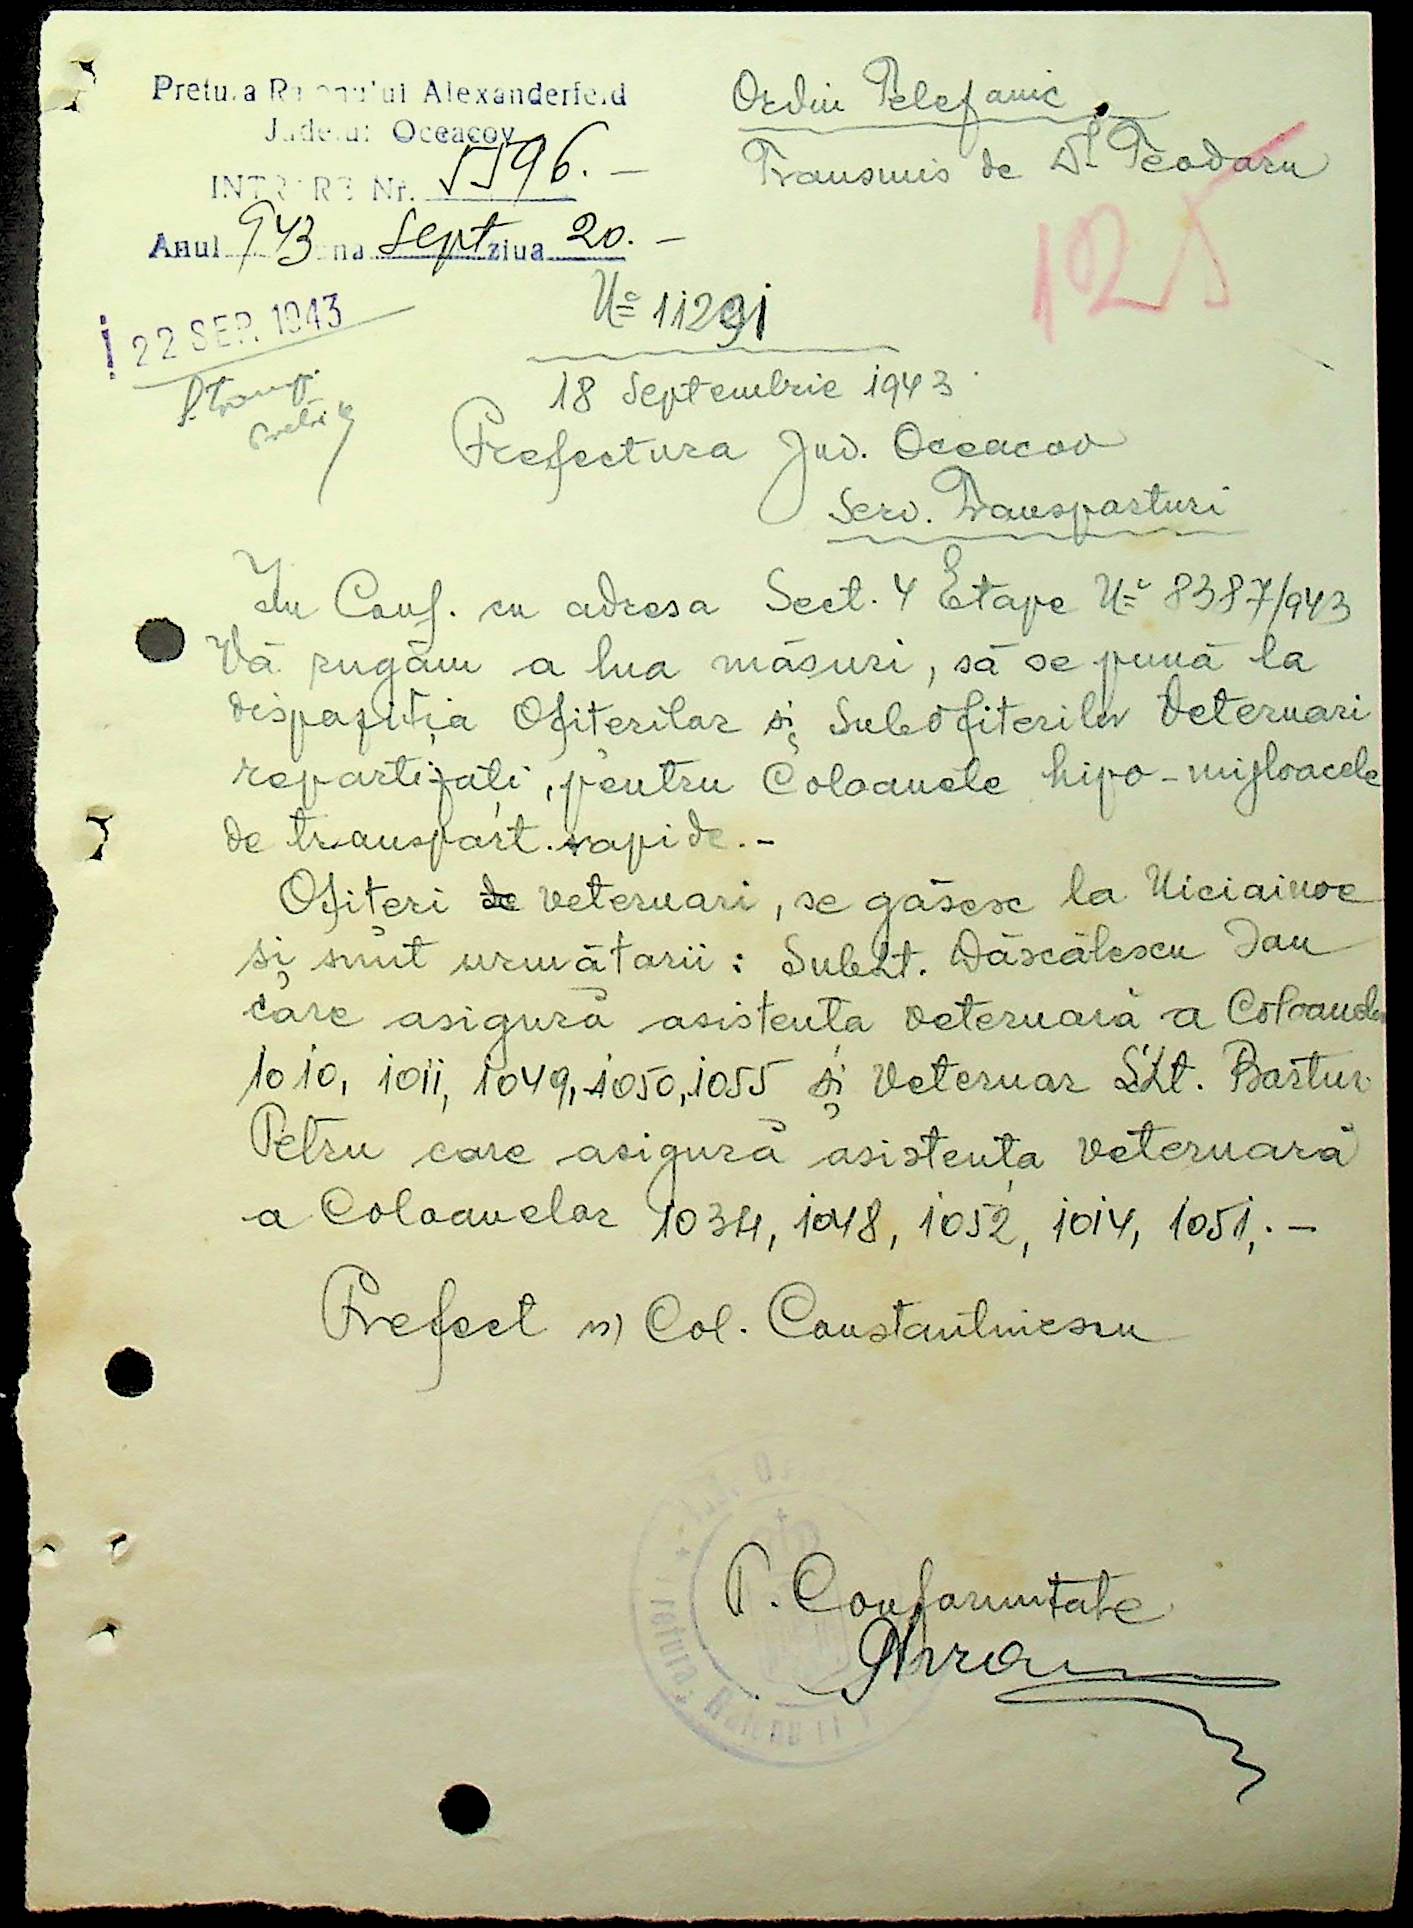 Pretura Raionului Alexanderfeld
Judetul Oceacov
INTRARE Nr. 5596. —
Anul 943 luna Sept ziua 20. —
22 SEP. 1943
Ordin Telefonic
Transmis de Dl Teodoru
125
No 11291
18 Septembrie 1943
Prefectura Jud. Oceacov
Serv. Transporturi
In Conf. cu adresa Sect. 4 Etape No 8387/943
Vă rugăm a lua măsuri, să se pună la
dispoziția Ofiterilor și Subofiterilor Veterinari
repartizați, pentru Coloanele hipo-mijloacele
de transport rapide. -
Ofiteri de veterinari, se găsesc la
și sunt următorii: Sublt. Dăscălescu Ian
care asigură asistența veterinară a Coloanelor
1010, 1011, 1049, 1050, 1055 și Veterinar S.Lt. Bartur
Petru care asigură asistența veterinară
a Coloanelor 1034, 1048, 1052, 1014, 1051,. —
Prefect ss) Col. Constantinescu
P. Conformitate